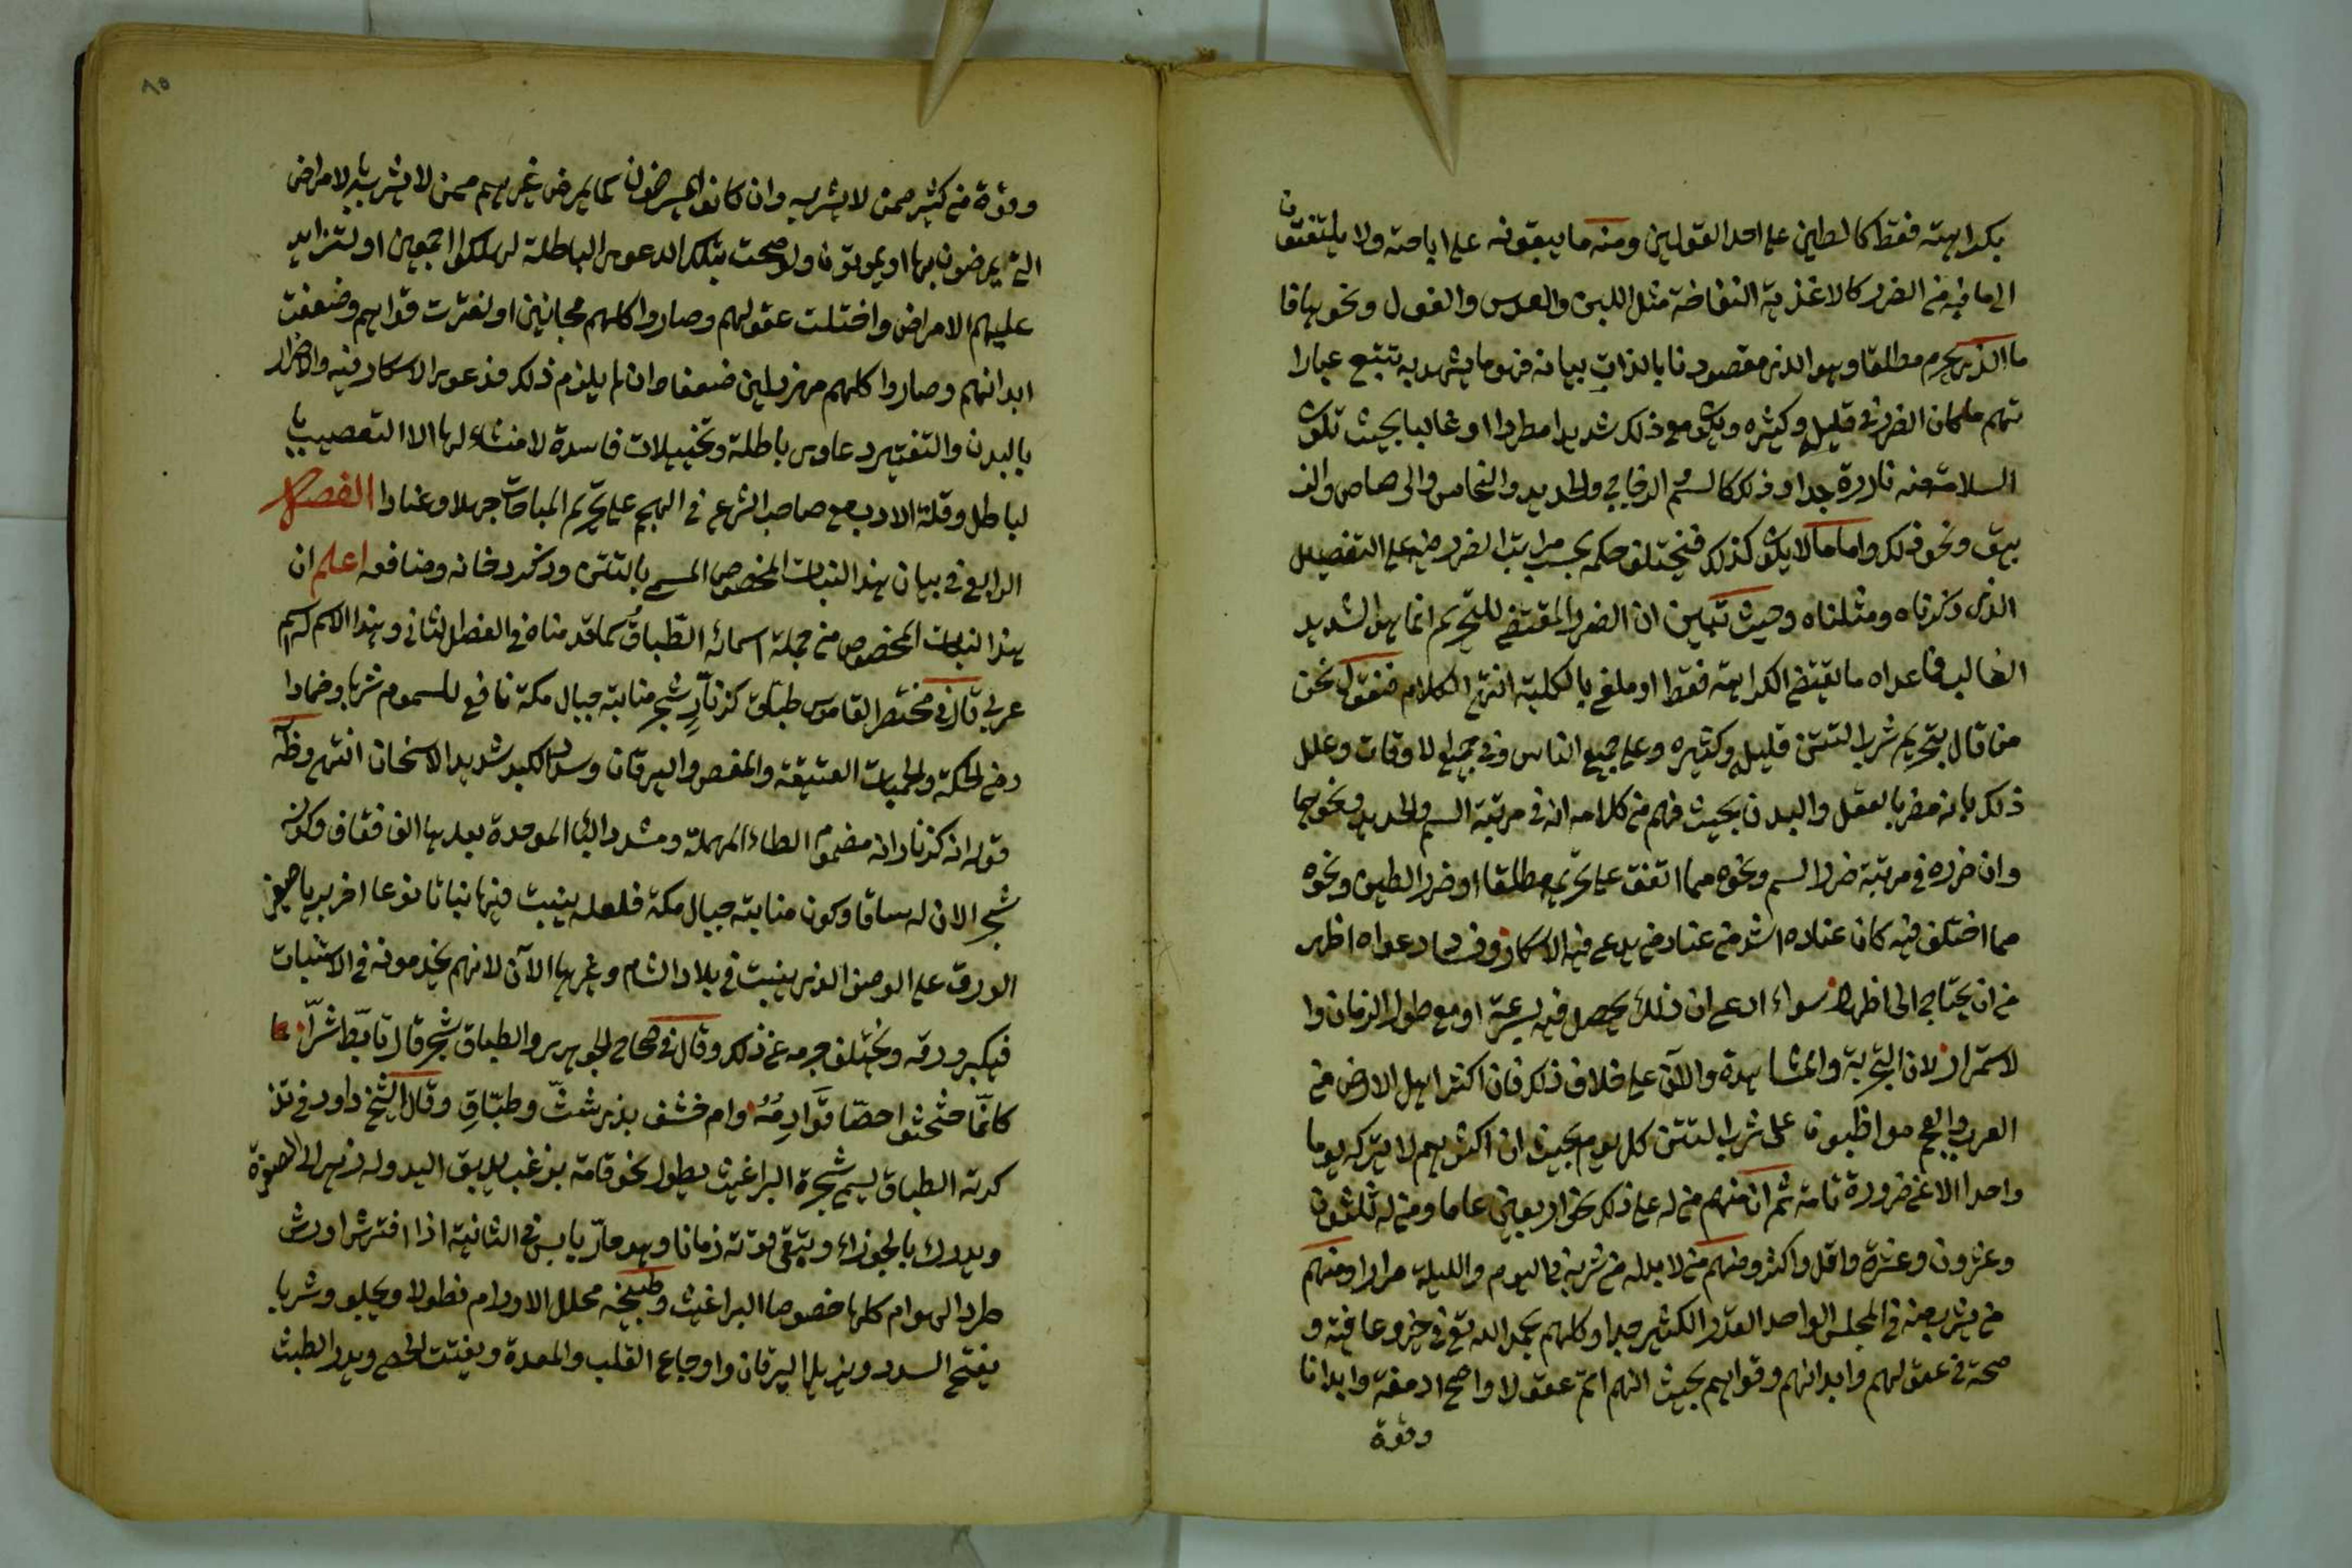 بكراهيته فقط كالطين على احد القولين ومنه ما يبقونه على اباحته ولا يلتفتون
الى ما فيه من الضرر كالاغذية النفاخة مثل اللبن والعدس والفول ونحوها فا
ما الذي يحرم مطلقا وهو الذي مقصودنا بالذات بيانه فهو ما يشهد به تتبع عبارا
تهم ما كان الضرر في قليله وكثيره ويكون مع ذلك شديدا مطردا او غالبا بحيث تكون
السلامة منه نادرة جدا وذلك كالسم الزجاجي والحديد والنحاس والرصاص والز
يبق ونحو ذلك واما ما لا يكون كذلك فيختلف حكمه بحسب مراتب الضرر فيه على التفصيل
الذي ذكرناه ومثلناه وحيث تبين ان الضرر المقتضي للتحريم انما هو الشديد
الغالب فما عداه ما يقتضي الكراهة فقط او ملغى بالكلية انتهى الكلام فنقول نحن
من قال بتحريم شرب التتن قليله وكثيره وعلى جميع الناس وفي جميع الاوقات وعلل
ذلك بانه مضر بالعقل والبدن بحيث فهم من كلامه انه في مرتبة السم والحديد ونحوهما
وان ضرره في مرتبة ضرر السم ونحوه مما اتفق على تحريمه مطلقا او ضرر الطين ونحوه
مما اختلف فيه كان عناده اشد من عناد من يدعي فيه الاسكار وفساد دعواه اظهر
من ان يحتاج الى اظهار سواء ادعى ان ذلك يحصل فيه بسرعة او مع طول الزمان وا
لاستمرار لان التجربة والمشاهدة والآن على خلاف ذلك فان اكثر اهل الارض من
العرب والعجم مواظبون على شرب التتن كل يوم بحيث ان اكثرهم لا يتركه يوما
واحدا الا عن ضرورة تامة ثم ان منهم من له على ذلك نحو اربعين عاما ومن له ثلثون
وعشرون وعشرة واقل واكثر ومنهم من لا بد له من شربه في اليوم والليلة مرارا ومنهم
من يشرب منه في المجلس الواحد القدر الكثير جدا وكلهم بحمد الله تع في خير وعافية و
صحة في عقولهم وابدانهم وقواهم بحيث انهم اتم عقولا واصح ادمغة وابدانا
وقوة
وقوة من كثير ممن لا يشربه وان كانوا يمرضون كما يمرض غيرهم ممن لا يشربه الامراض
التي يمرضون بها او يموتون ولو صحت تلك الدعوى الباطلة لهلكوا اجمعين او لتزايد
عليهم الامراض واختلت عقولهم وصاروا كلهم مجانين او لفترت قواهم وضعفت
ابدانهم وصاروا كلهم مهزولين ضعفا وان لم يلزم ذلك فدعوى الاسكار فيه والاضرار
بالبدن والتفتير دعاوى باطلة وتخييلات فاسدة لا منشاء لها الا التعصب با
لباطل وقلة الادب مع صاحب الشرع في الهجم على تحريم المباحات جهلا وعنادا الفصل
الرابع في بيان هذا النبات المخصوص المسمى بالتتن وذكر دخانه ومنافعه اعلم ان
هذا النبات المخصوص من جملة اسمائه الطباق كما قدمناه في الفصل الثاني وهذا الاسم اسم
عربي قال في مختصر القاموس طباق كزنار شجر منابته جبال مكة نافع للسموم شربا وضمادا
ومن الحكة والحميات العتيقة والمغص واليرقان وسدد الكبد شديد الاسخان انتهى وظاهر
قوله انه كزنار انه مضموم الطاء المهملة ومشدد الباء الموحدة بعدها الف فقاف وكونه
شجر الان له ساقا وكون منابته جبال مكة فلعله ينبت فيها نباتا نوعا اخر بريا صغير
الورق على الوصف الذي ينبت في بلاد الشام وغيرها الآن لانهم يخدمونه في الاستنبات
فيكبر ورقه ويختلف جرمه عن ذلك وقال في صحاح الجوهري والطباق شجر قال تابط شرا
كانما حثحثوا حصا قوادمه وام خشف بذي شث وطباق وقال الشيخ داود في تذ
كرته الطباق يسمى شجرة البراغيث يطول نحو قامة بزغب يدبق اليد وله زهر الى الصفرة
ويدرك بالجوزاء وتبقى قوته زمانا وهو حار يابس في الثانية اذا افترش او رش
طرد الهوام كلها خصوصا البراغيث وطبيخه محلل الاورام نطولا ويجلو وشربا
يفتح السدد ويزيل اليرقان واوجاع القلب والمعدة ويفتت الحصى ويدر الطمث